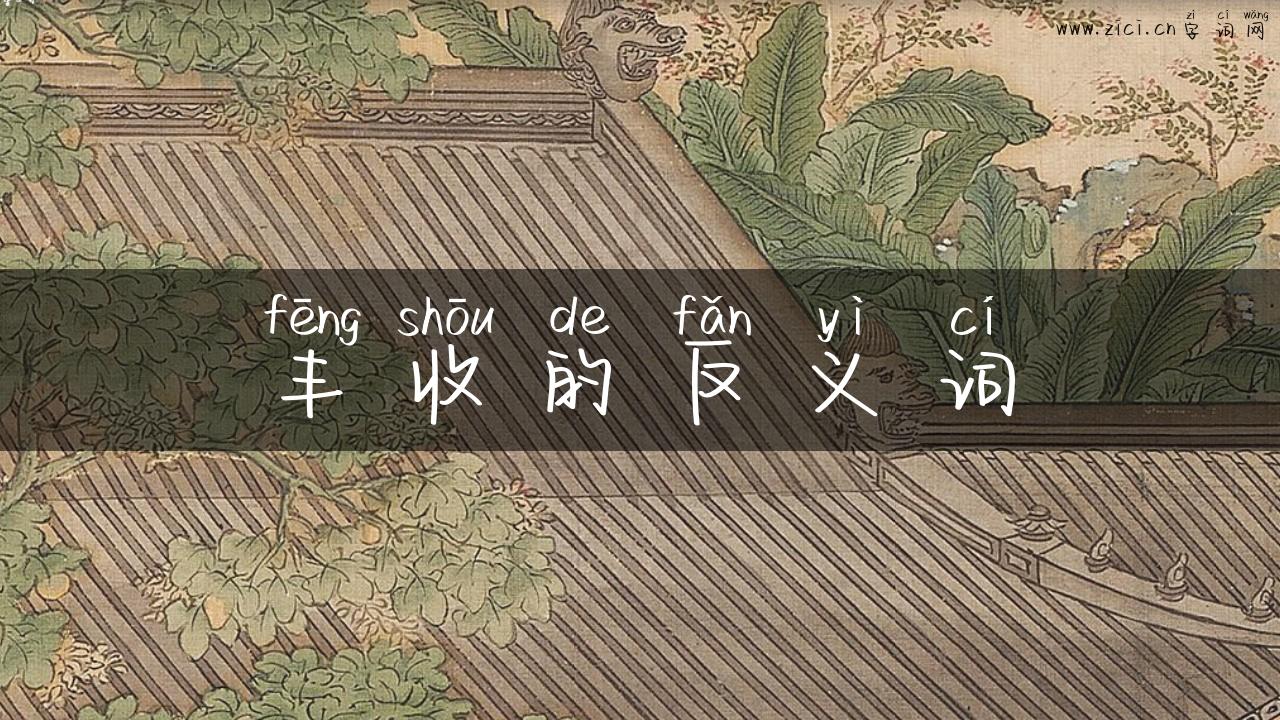 zì cí wǎng
www.zici.cn 字词网
fēng shōu de fǎn yì cí
丰收的反义词